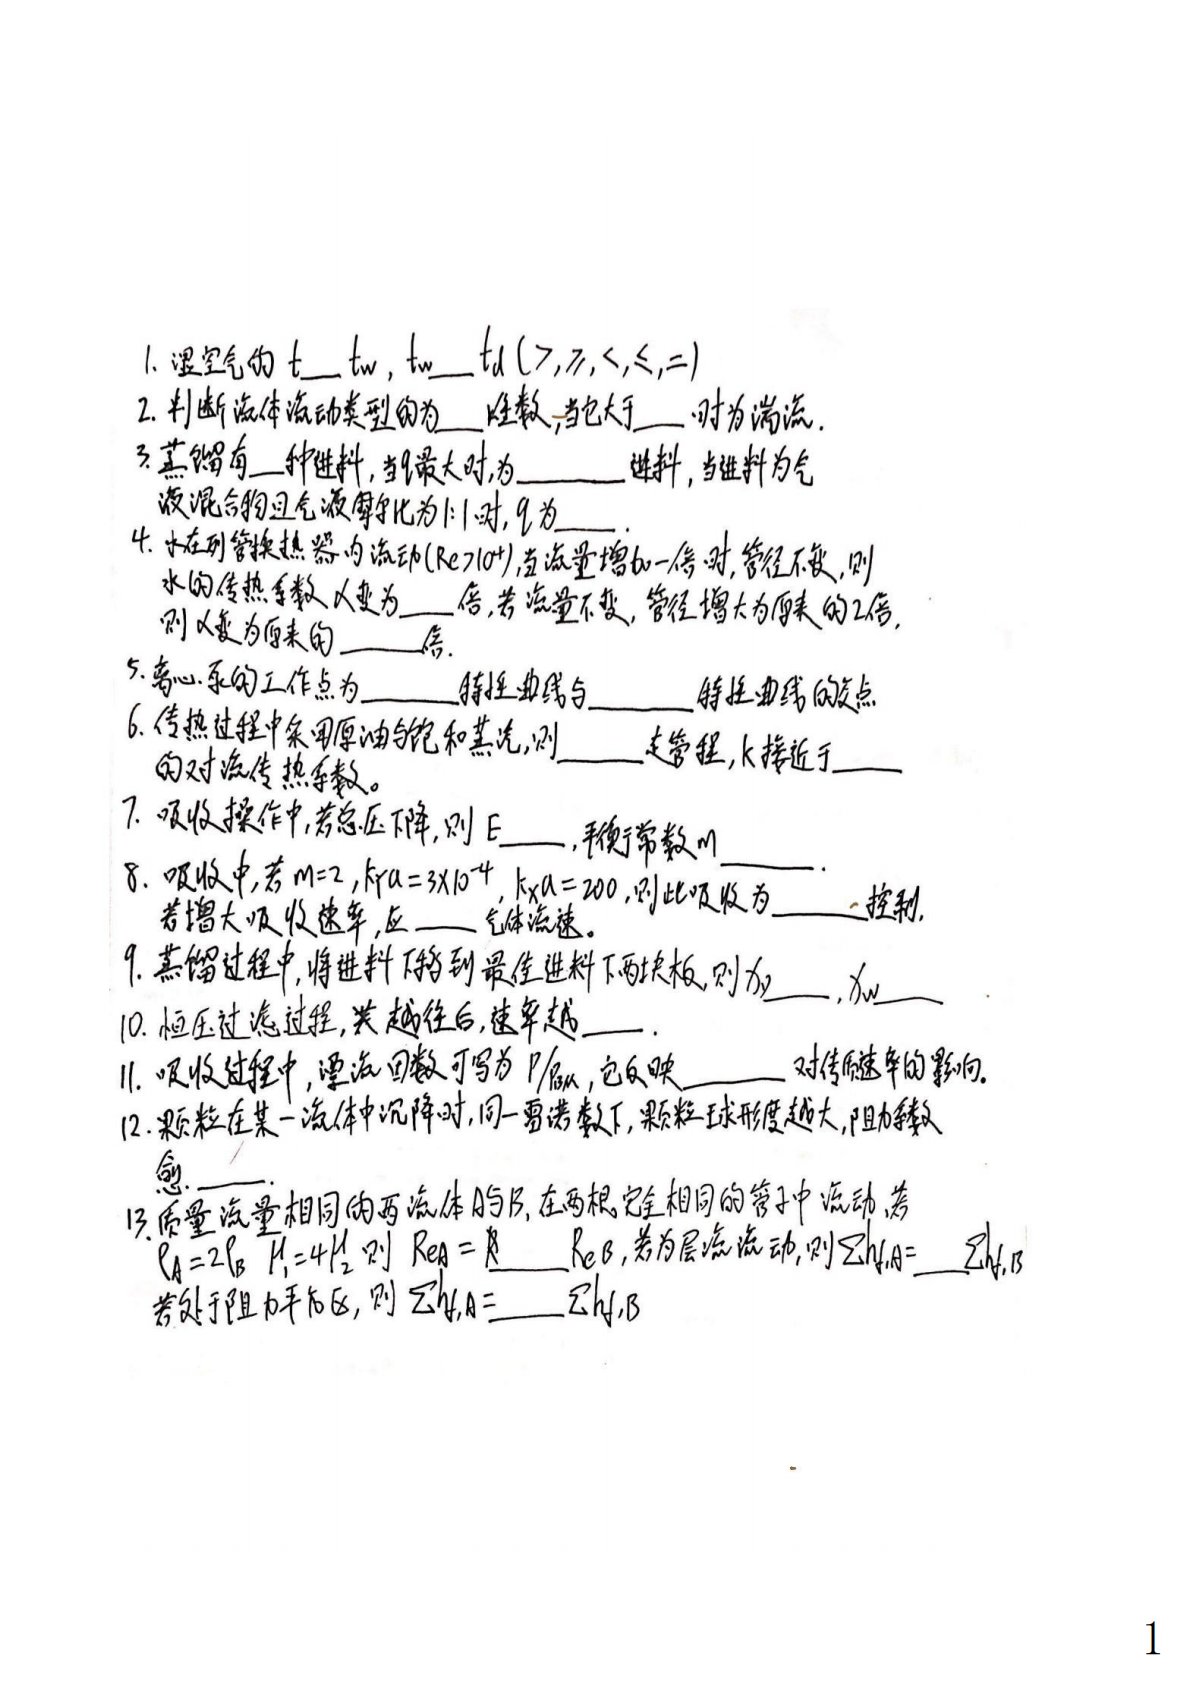 1. 湿空气的 t___tw, tw___td (>,≥,<,≤,=)
2. 判断流体流动类型的为___准数,当它大于___时为湍流.
3. 蒸馏有__种进料,当q最大时,为______进料,当进料为气
液混合物且气液摩尔比为1:1时, q为____.
4. 水在列管换热器内流动(Re>10⁴),当流量增加一倍时,管径不变,则
水的传热系数α变为___倍,若流量不变,管径增大为原来的2倍,
则α变为原来的_____倍.
5. 离心泵的工作点为______特性曲线与______特性曲线的交点
6. 传热过程中采用原油与饱和蒸汽,则_____走管程,K接近于____
的对流传热系数。
7. 吸收操作中,若总压下降,则E____,平衡常数m______.
8. 吸收中,若m=2, kya=3×10⁻⁴, kxa=200,则此吸收为_____控制.
若增大吸收速率,应____气体流速。
9. 蒸馏过程中,将进料下移到最佳进料下两块板,则xD____, xw____
10. 恒压过滤过程,越往后,速率越____.
11. 吸收过程中,漂流因数可写为P/PBM,它反映______对传质速率的影响。
12. 颗粒在某一流体中沉降时,同一雷诺数下,颗粒球形度越大,阻力系数
愈____.
13. 质量流量相同的两流体A与B,在两根完全相同的管子中流动,若
ρA=2ρB μ1=4μ2 则 ReA=_____ReB,若为层流流动,则Σhf,A=___Σhf,B
若处于阻力平方区,则Σhf,A=____Σhf,B
1